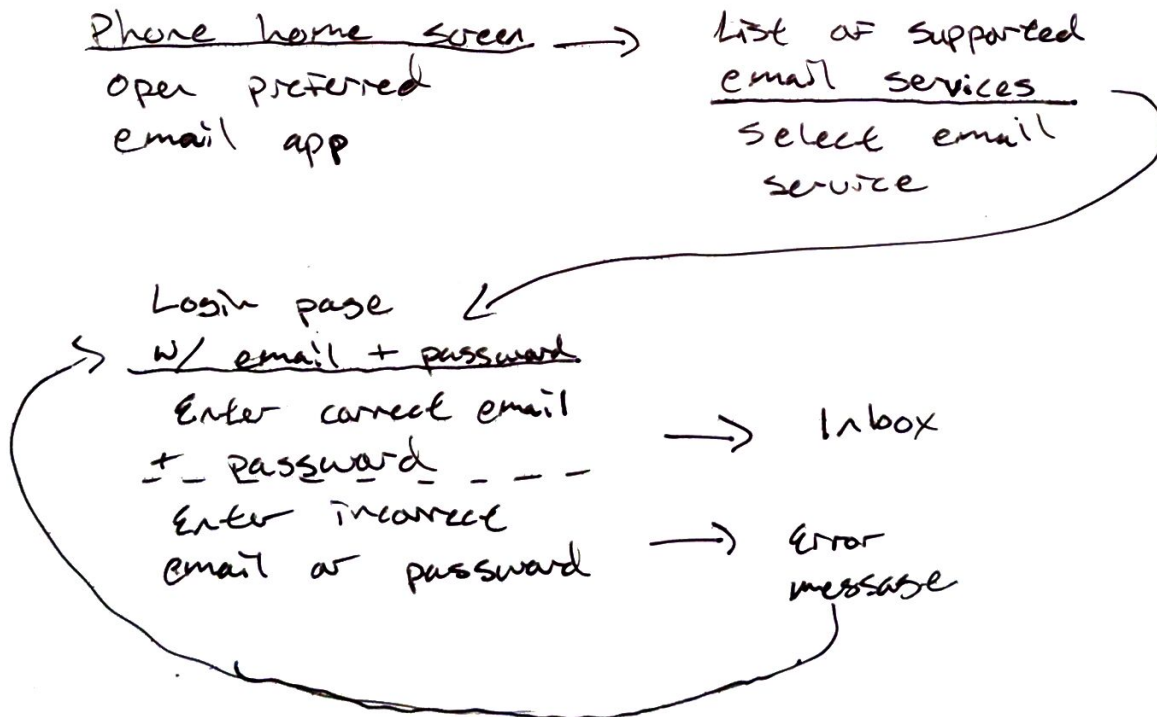 Phone home screen
open preferred
email app
List of supported
email services
select email
service
Login page
w/ email + password
Enter correct email
+ password
Enter incorrect
email or password
Inbox
Error
message